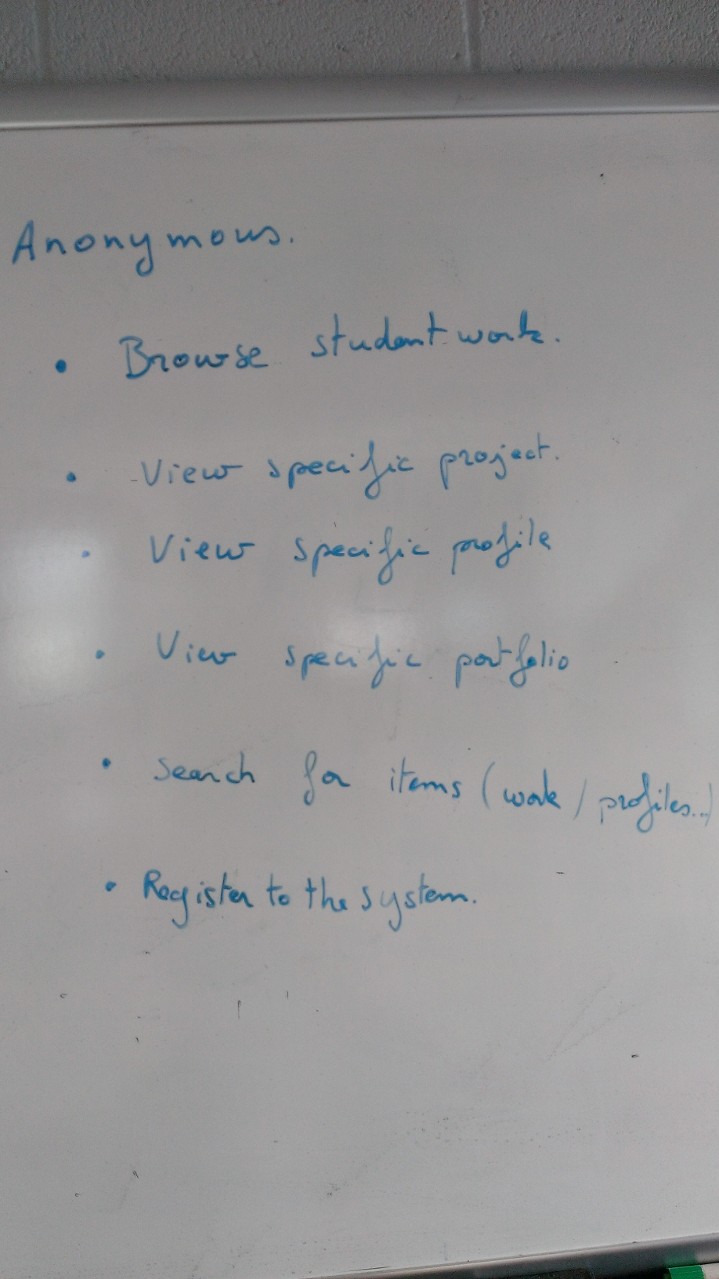 Anonymous.
• Browse student work.
• View specific project.
• View specific profile
• View specific portfolio
• Search for items (work / profiles...)
• Register to the system.